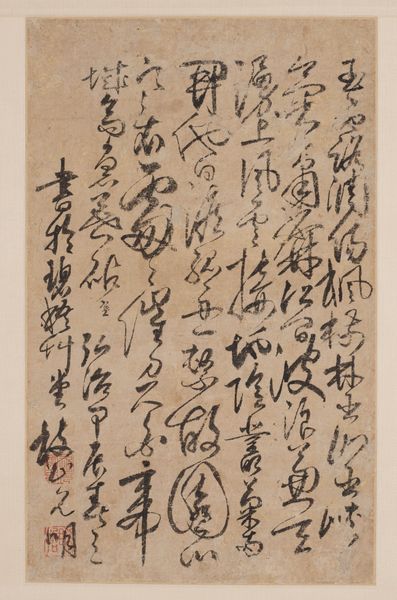 玉露凋傷楓樹林巫山巫峽
氣蕭森江間波浪兼天
湧塞上風雲接地陰叢菊兩
開他日淚孤舟一繫故園心
寒衣處處催刀尺白帝
城高急暮砧 弘治甲辰春
書於碧梧草堂 枝山允明